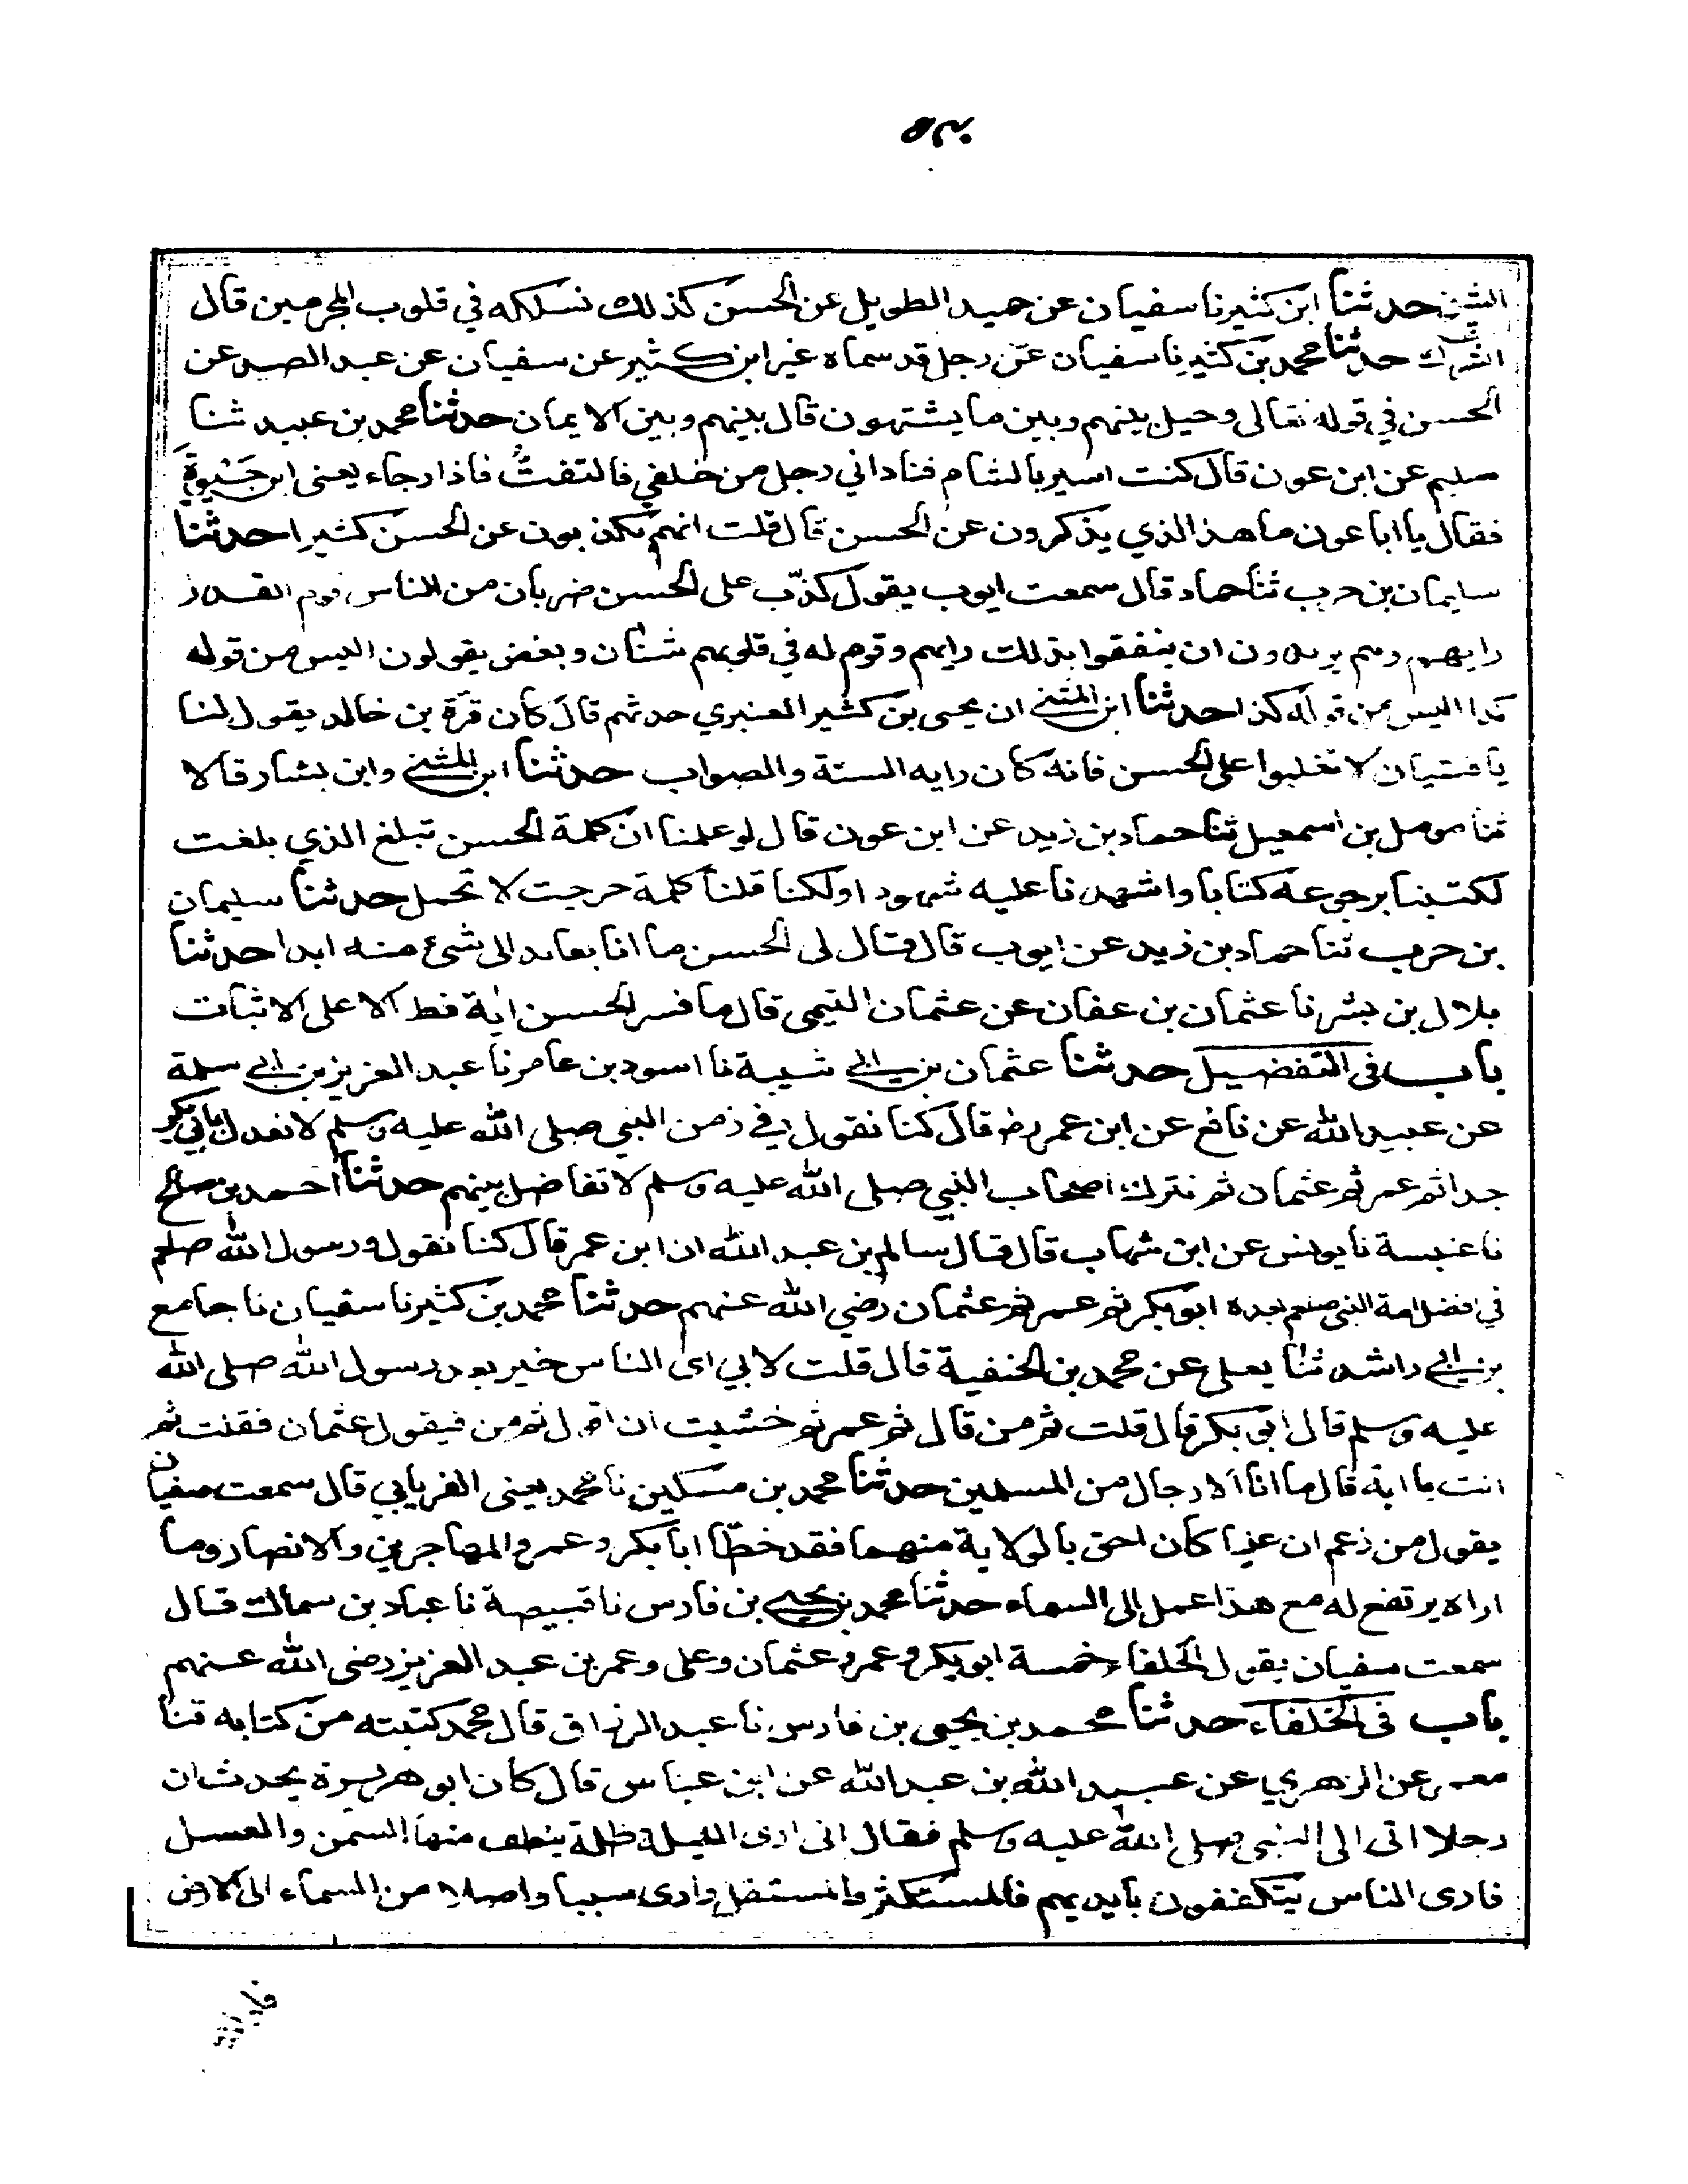 الشر حدثنا ابن كثير نا سفيان عن حميد الطويل عن الحسن كذلك نسلكه في قلوب المجرمين قال
الشرك حدثنا محمد بن كثير نا سفيان عن رجل قد سماه غير ابن كثير عن سفيان عن عبد الصيد عن
الحسن في قوله تعالى وحيل بينهم وبين ما يشتهون قال بينهم وبين الايمان حدثنا محمد بن عبيد ثنا
سليم عن ابن عون قال كنت اسير بالشام فناداني رجل من خلفي فالتفتُّ فاذا رجاء يعنى ابن حَيْوة
فقال يا ابا عون ما هذا الذي يذكرون عن الحسن قال قلت انهم يكذبون عن الحسن كثيرا حدثنا
سليمان بن حرب ثنا حماد قال سمعت ايوب يقول كذّب على الحسن ضربان من الناس قوم القدر
رايهم وهم يريدون ان ينفقوا بذلك رايهم وقوم له في قلوبهم شنان وبغض يقولون اليس من قوله
كذا اليس من قوله كذا حدثنا ابن المثنى ان يحيى بن كثير العنبري حدثهم قال كان قرة بن خالد يقول لنا
يا فتيان لا تغلبوا على الحسن فانه كان رايه السنة والصواب حدثنا ابن المثنى وابن بشار قالا
ثنا مومل بن اسمعيل ثنا حماد بن زيد عن ابن عون قال لو علمنا ان كلمة الحسن تبلغ الذي بلغت
لكتبنا برجوعه كتابا واشهدنا عليه شهودا ولكنا قلنا كلمة خرجت لا تحمل حدثنا سليمان
بن حرب ثنا حماد بن زيد عن ايوب قال قال لى الحسن ما انا بعائد الى شئ منه ابدا حدثنا
بلال بن بشر نا عثمان بن عفان عن عثمان التيمى قال ما فسر الحسن اية قط الا على الاثبات
باب في التفضيل حدثنا عثمان بن ابي شيبة نا اسود بن عامر نا عبد العزيز بن ابي سلمة
عن عبيد الله عن نافع عن ابن عمر رضه قال كنا نقول في زمن النبي صلى الله عليه وسلم لا نعدل بابي بكر
احدا ثم عمر ثم عثمان ثم نترك اصحاب النبي صلى الله عليه وسلم لا تفاضل بينهم حدثنا احمد بن صالح
نا عنبسة نا يونس عن ابن شهاب قال قال سالم بن عبد الله ان ابن عمر قال كنا نقول ورسول الله صلعم
في افضل امة النبي صلعم بعده ابو بكر ثم عمر ثم عثمان رضي الله عنهم حدثنا محمد بن كثير نا سفيان نا جامع
بن ابي راشد ثنا يعلى عن محمد بن الحنفية قال قلت لابي اى الناس خير بعد رسول الله صلى الله
عليه وسلم قال ابي بكر قال قلت ثم من قال ثم عمر ثم خشيت ان اقول ثم من فيقول عثمان فقلت ثم
انت يا ابة قال ما انا الا رجل من المسلمين حدثنا محمد بن مسكين نا محمد يعنى الفريابي قال سمعت سفيان
يقول من زعم ان عليا كان احق بالولاية منهما فقد خطّا ابا بكر وعمر والمهاجرين والانصار وما
اراه يرتفع له مع هذا عمل الى السماء حدثنا محمد بن يحيى بن فارس نا قبيصة نا عباد بن سماك قال
سمعت سفيان يقول الخلفاء خمسة ابو بكر وعمر وعثمان وعلى وعمر بن عبد العزيز رضى الله عنهم
باب في الخلفاء حدثنا محمد بن يحيى بن فارس نا عبد الرزاق قال محمد كتبته من كتابه قنا
معمر عن الزهري عن عبيد الله بن عبد الله عن ابن عباس قال كان ابو هريرة يحدث ان
رجلا اتى الى النبي صلى الله عليه وسلم فقال انى ارى الليلة ظلة ينطف منها السمن والعسل
فارى الناس يتكففون بايديهم فالمستكثر والمستقل وارى سببا واصلا من السماء الى الارض